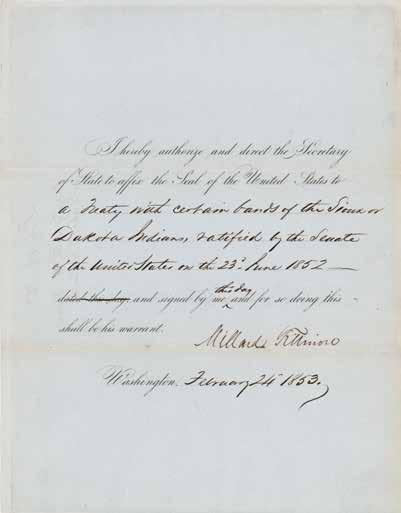 I hereby authorize and direct the Secretary
of State to affix the Seal of the United States to
a Treaty with certain bands of the Sioux or
Dakota Indians, ratified by the Senate
of the United States on the 23d June 1852 —
dated this day, and signed by me this day and for so doing this
shall be his warrant.
Millard Fillmore
Washington, February 24th 1853.